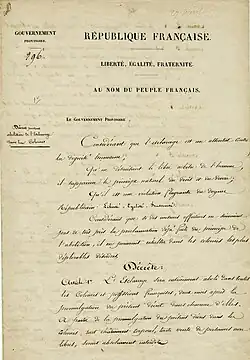 GOUVERNEMENT
PROVISOIRE.
RÉPUBLIQUE FRANÇAISE.
LIBERTÉ, ÉGALITÉ, FRATERNITÉ.
AU NOM DU PEUPLE FRANÇAIS.
Le Gouvernement Provisoire,
Considérant que l'esclavage est un attentat contre
la dignité humaine;
Qu'en détruisant le libre arbitre de l'homme,
il supprime le principe naturel du droit et du devoir;
Qu'il est une violation flagrante du dogme
républicain: Liberté, Égalité, Fraternité.
Considérant que si des mesures effectives ne suivaient
pas de très près la proclamation déjà faite du principe de
l'abolition, il en pourrait résulter dans les colonies les plus
déplorables désordres,
Décrète:
Article 1er. L'Esclavage sera entièrement aboli dans toutes
les Colonies et possessions françaises, deux mois après la
promulgation du présent décret dans chacune d'elles.
A partir de la promulgation du présent décret dans les
Colonies, tout châtiment corporel, toute vente de personnes non
libres, seront absolument interdits.